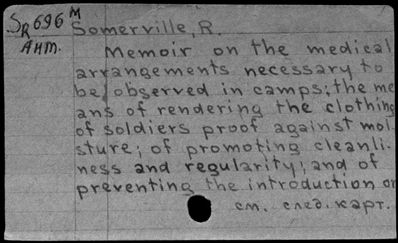 SR 696 M
Англ.
Somerville, R.
Memoir on the medical
arrangements necessary to
be observed in camps; the me
ans of rendering the clothing
of soldiers proof against moi-
sture; of promoting cleanli-
ness and regularity; and of
preventing the introduction or
см. след. карт.